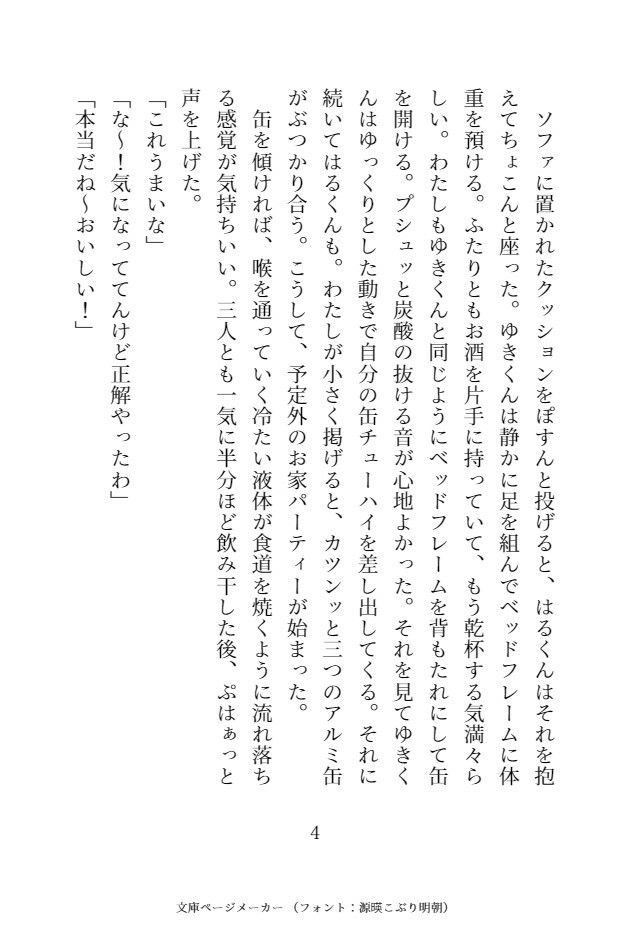 ソファに置かれたクッションをぽすんと投げると、はるくんはそれを抱
えてちょこんと座った。ゆきくんは静かに足を組んでベッドフレームに体
重を預ける。ふたりともお酒を片手に持っていて、もう乾杯する気満々ら
しい。わたしもゆきくんと同じようにベッドフレームを背もたれにして缶
を開ける。プシュッと炭酸の抜ける音が心地よかった。それを見てゆきく
んはゆっくりとした動きで自分の缶チューハイを差し出してくる。それに
続いてはるくんも。わたしが小さく掲げると、カツンッと三つのアルミ缶
がぶつかり合う。こうして、予定外のお家パーティーが始まった。
　缶を傾ければ、喉を通っていく冷たい液体が食道を焼くように流れ落ち
る感覚が気持ちいい。三人とも一気に半分ほど飲み干した後、ぷはぁっと
声を上げた。
「これうまいな」
「な～！気になっててんけど正解やったわ」
「本当だね～おいしい！」
4
文庫ページメーカー（フォント：源暎こぶり明朝）